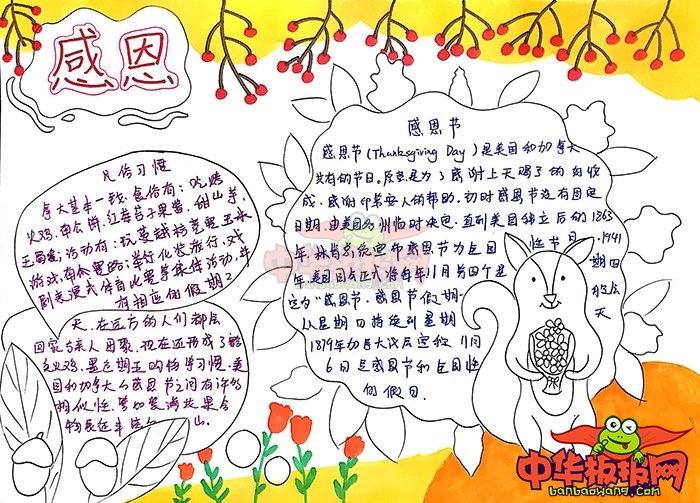 感恩
凡俗习惯
拿大基本一致,食俗有:吃烤
火鸡、南瓜饼、红莓苔子果酱、甜山芋、
玉蜀黍;活动有:玩蔓越桔竞赛、玉米
游戏、南瓜赛跑;举行化装游行、戏
剧表演或体育比赛等集体活动,并
有相应的假期2
天、在远方的人们都会
回家与亲人团聚。现在还形成了
火鸡、黑色期五购物习惯,美
国和加拿大的感恩节之间有许多
相似性、
感恩节
感恩节(Thanksgiving Day)是美国和加拿大
共有的节日,原意是为了感谢上天赐予的好收
成、感谢印第安人的帮助。初时感恩节没有固定
日期,由美国各州临时决定,直到美国独立后的1863
年,林肯总统宣布感恩节为全国性节日。1941
年,美国国会正式将每年11月第四个星期四
定为“感恩节。感恩节假期一般会
从星期四持续到星期天
1879年加拿大议会宣称11月
6日是感恩节和全国性
的假日.
中华板报网
banbaowang.com